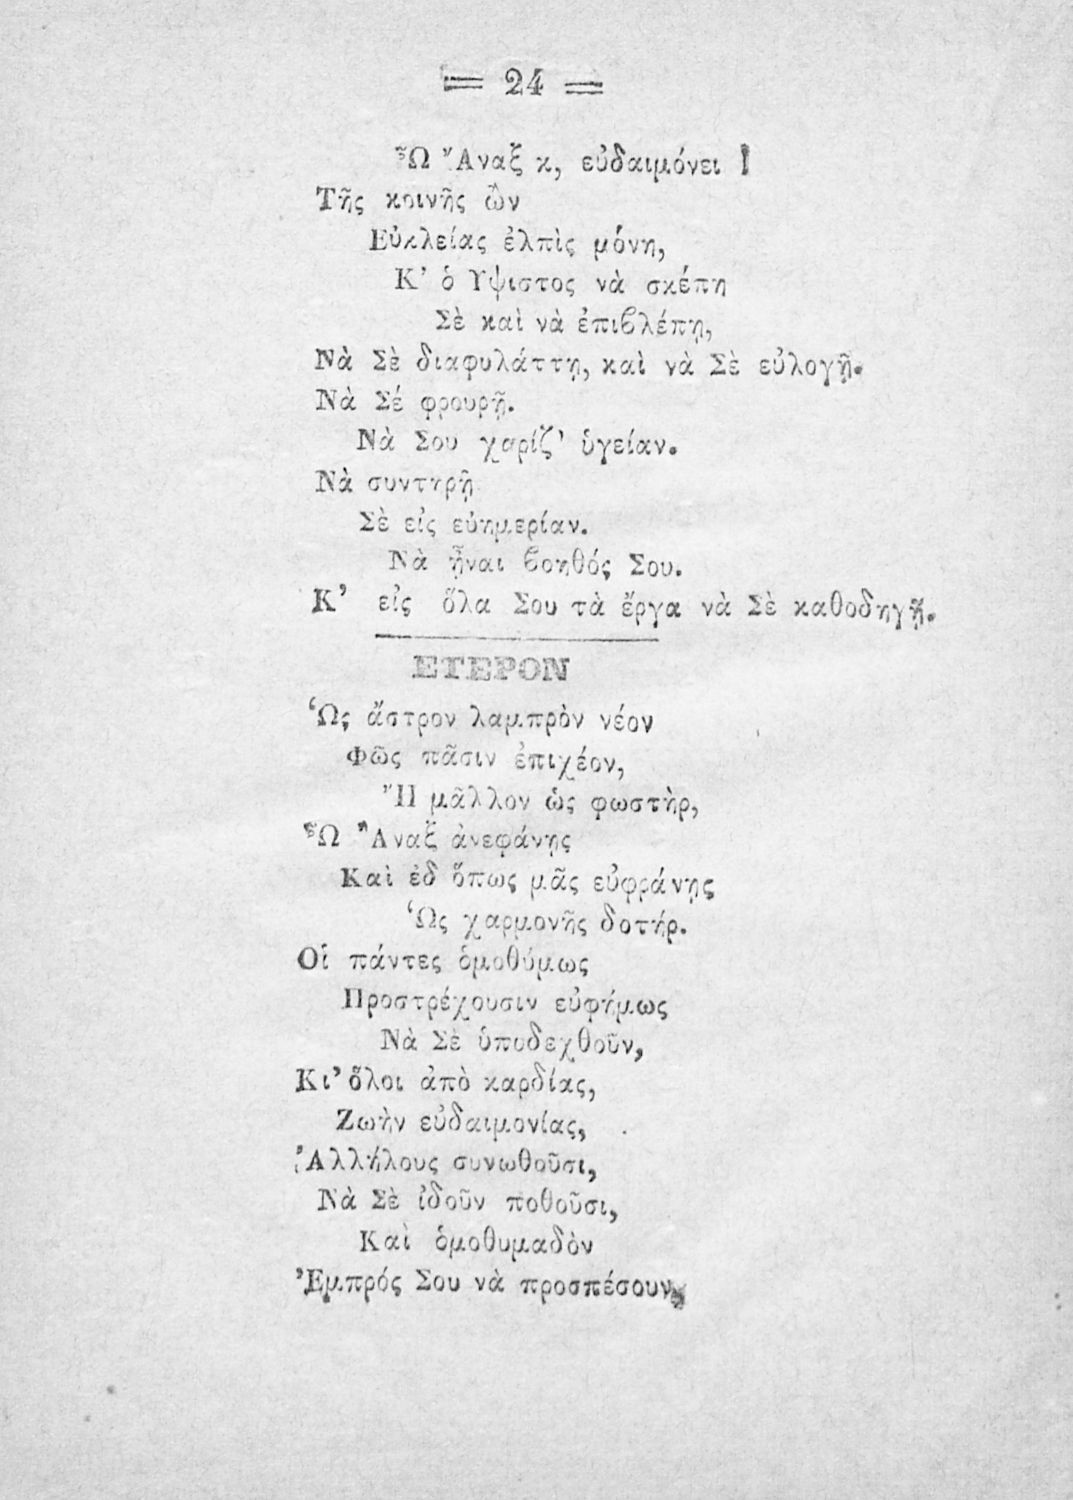 = 24 =
Ὦ Ἄναξ κ, εὐδαιμόνει !
Τῆς κοινῆς ὢν
Εὐκλείας ἐλπὶς μόνη,
Κ’ ὁ Υψιστος νὰ σκέπη
Σὲ καὶ νὰ ἐπιϐλέπῃ,
Νὰ Σὲ διαφυλάττῃ, καὶ νὰ Σὲ εὐλογῇ.
Νὰ Σέ φρουρῇ.
Νὰ Σου χαρίζ’ ὑγείαν.
Νὰ συντηρῇ
Σὲ εἰς εὐημερίαν.
Νὰ ᾖναι ϐοηθός Σου.
Κ’ εἰς ὅλα Σου τὰ ἔργα νὰ Σὲ καθοδηγῇ.
ΕΤΕΡΟΝ
Ὡς ἄστρον λαμπρὸν νέον
Φῶς πᾶσιν ἐπιχέον,
Ἢ μᾶλλον ὡς φωστὴρ,
Ὦ Ἄναξ ἀνεφάνης
Καὶ ἐδ ὅπως μᾶς εὐφράνῃς
Ὡς χαρμονῆς δοτήρ.
Οἱ πάντες ὁμοθύμως
Προστρέχουσιν εὐφήμως
Νὰ Σὲ ὑποδεχθοῦν,
Κι’ ὅλοι ἀπὸ καρδίας,
Ζωὴν εὐδαιμονίας,
Ἀλλήλους συνωθοῦσι,
Νὰ Σὲ ἰδοῦν ποθοῦσι,
Καὶ ὁμοθυμαδὸν
Ἐμπρός Σου νὰ προσπέσουν,